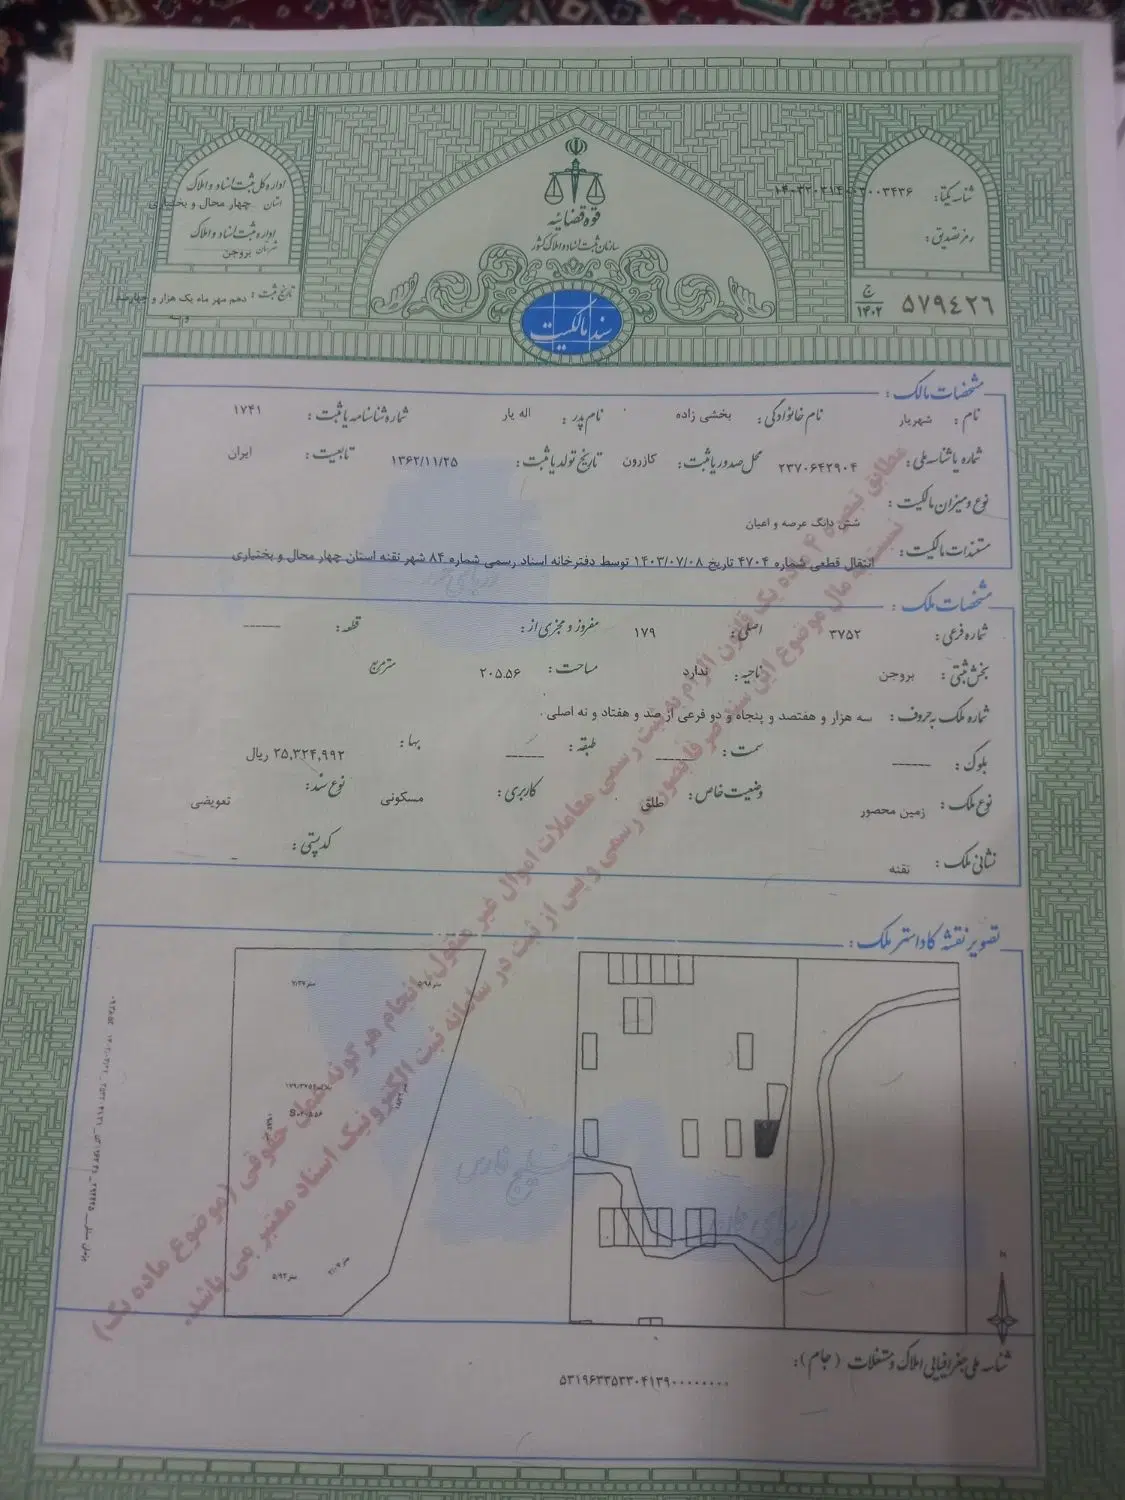 اداره کل ثبت اسناد و املاک
استان چهار محال و بختیاری
اداره ثبت اسناد و املاک
شهرستان بروجن
تاریخ ثبت : دهم مهر ماه یک هزار و چهارصد و سه
قوه قضائیه
سازمان ثبت اسناد و املاک کشور
سند مالکیت
شناسه یکتا:
رمز تصدیق :
۵۷۹۴۲۶ ج ۱۴۰۲
مشخصات مالک :
نام : شهریار نام خانوادگی : بخشی زاده نام پدر : اله یار شماره شناسنامه یا ثبت : ۱۷۴۱
شماره یا شناسه ملی : ۲۳۷۰۶۴۲۹۰۴ محل صدور یا ثبت : کازرون تاریخ تولد یا ثبت : ۱۳۶۲/۱۱/۲۵ تابعیت : ایران
نوع و میزان مالکیت : شش دانگ عرصه و اعیان
مستندات مالکیت : انتقال قطعی شماره ۴۷۰۴ تاریخ ۱۴۰۳/۰۷/۰۸ توسط دفترخانه اسناد رسمی شماره ۸۴ شهر نقنه استان چهار محال و بختیاری
مشخصات ملک :
شماره فرعی : ۳۷۵۲ اصلی : ۱۷۹ مفروز و مجزی از : قطعه : ------
بخش ثبتی : بروجن ناحیه : ندارد مساحت : ۲۰۵.۵۶ متر مربع
شماره ملک به حروف : سه هزار و هفتصد و پنجاه و دو فرعی از صد و هفتاد و نه اصلی .
بلوک : ------ سمت : ------ طبقه : ------ بها : ۲۵,۳۲۴,۹۹۲ ریال
نوع ملک : زمین محصور وضعیت خاص : طلق کاربری : مسکونی نوع سند : تعویضی
نشانی ملک : نقنه کد پستی : -
تصویر نقشه کاداستر ملک :
مطابق تبصره ۴ ماده یک قانون الزام به ثبت رسمی معاملات اموال غیر منقول، انجام هر گونه عمل حقوقی (موضوع ماده یک)
نسبت به مال موضوع این سند صرفا بصورت رسمی و پس از ثبت در سامانه ثبت الکترونیک اسناد معتبر می باشد.
خلیج فارس
N
شناسه ملی جغرافیایی املاک و مستغلات (جام):